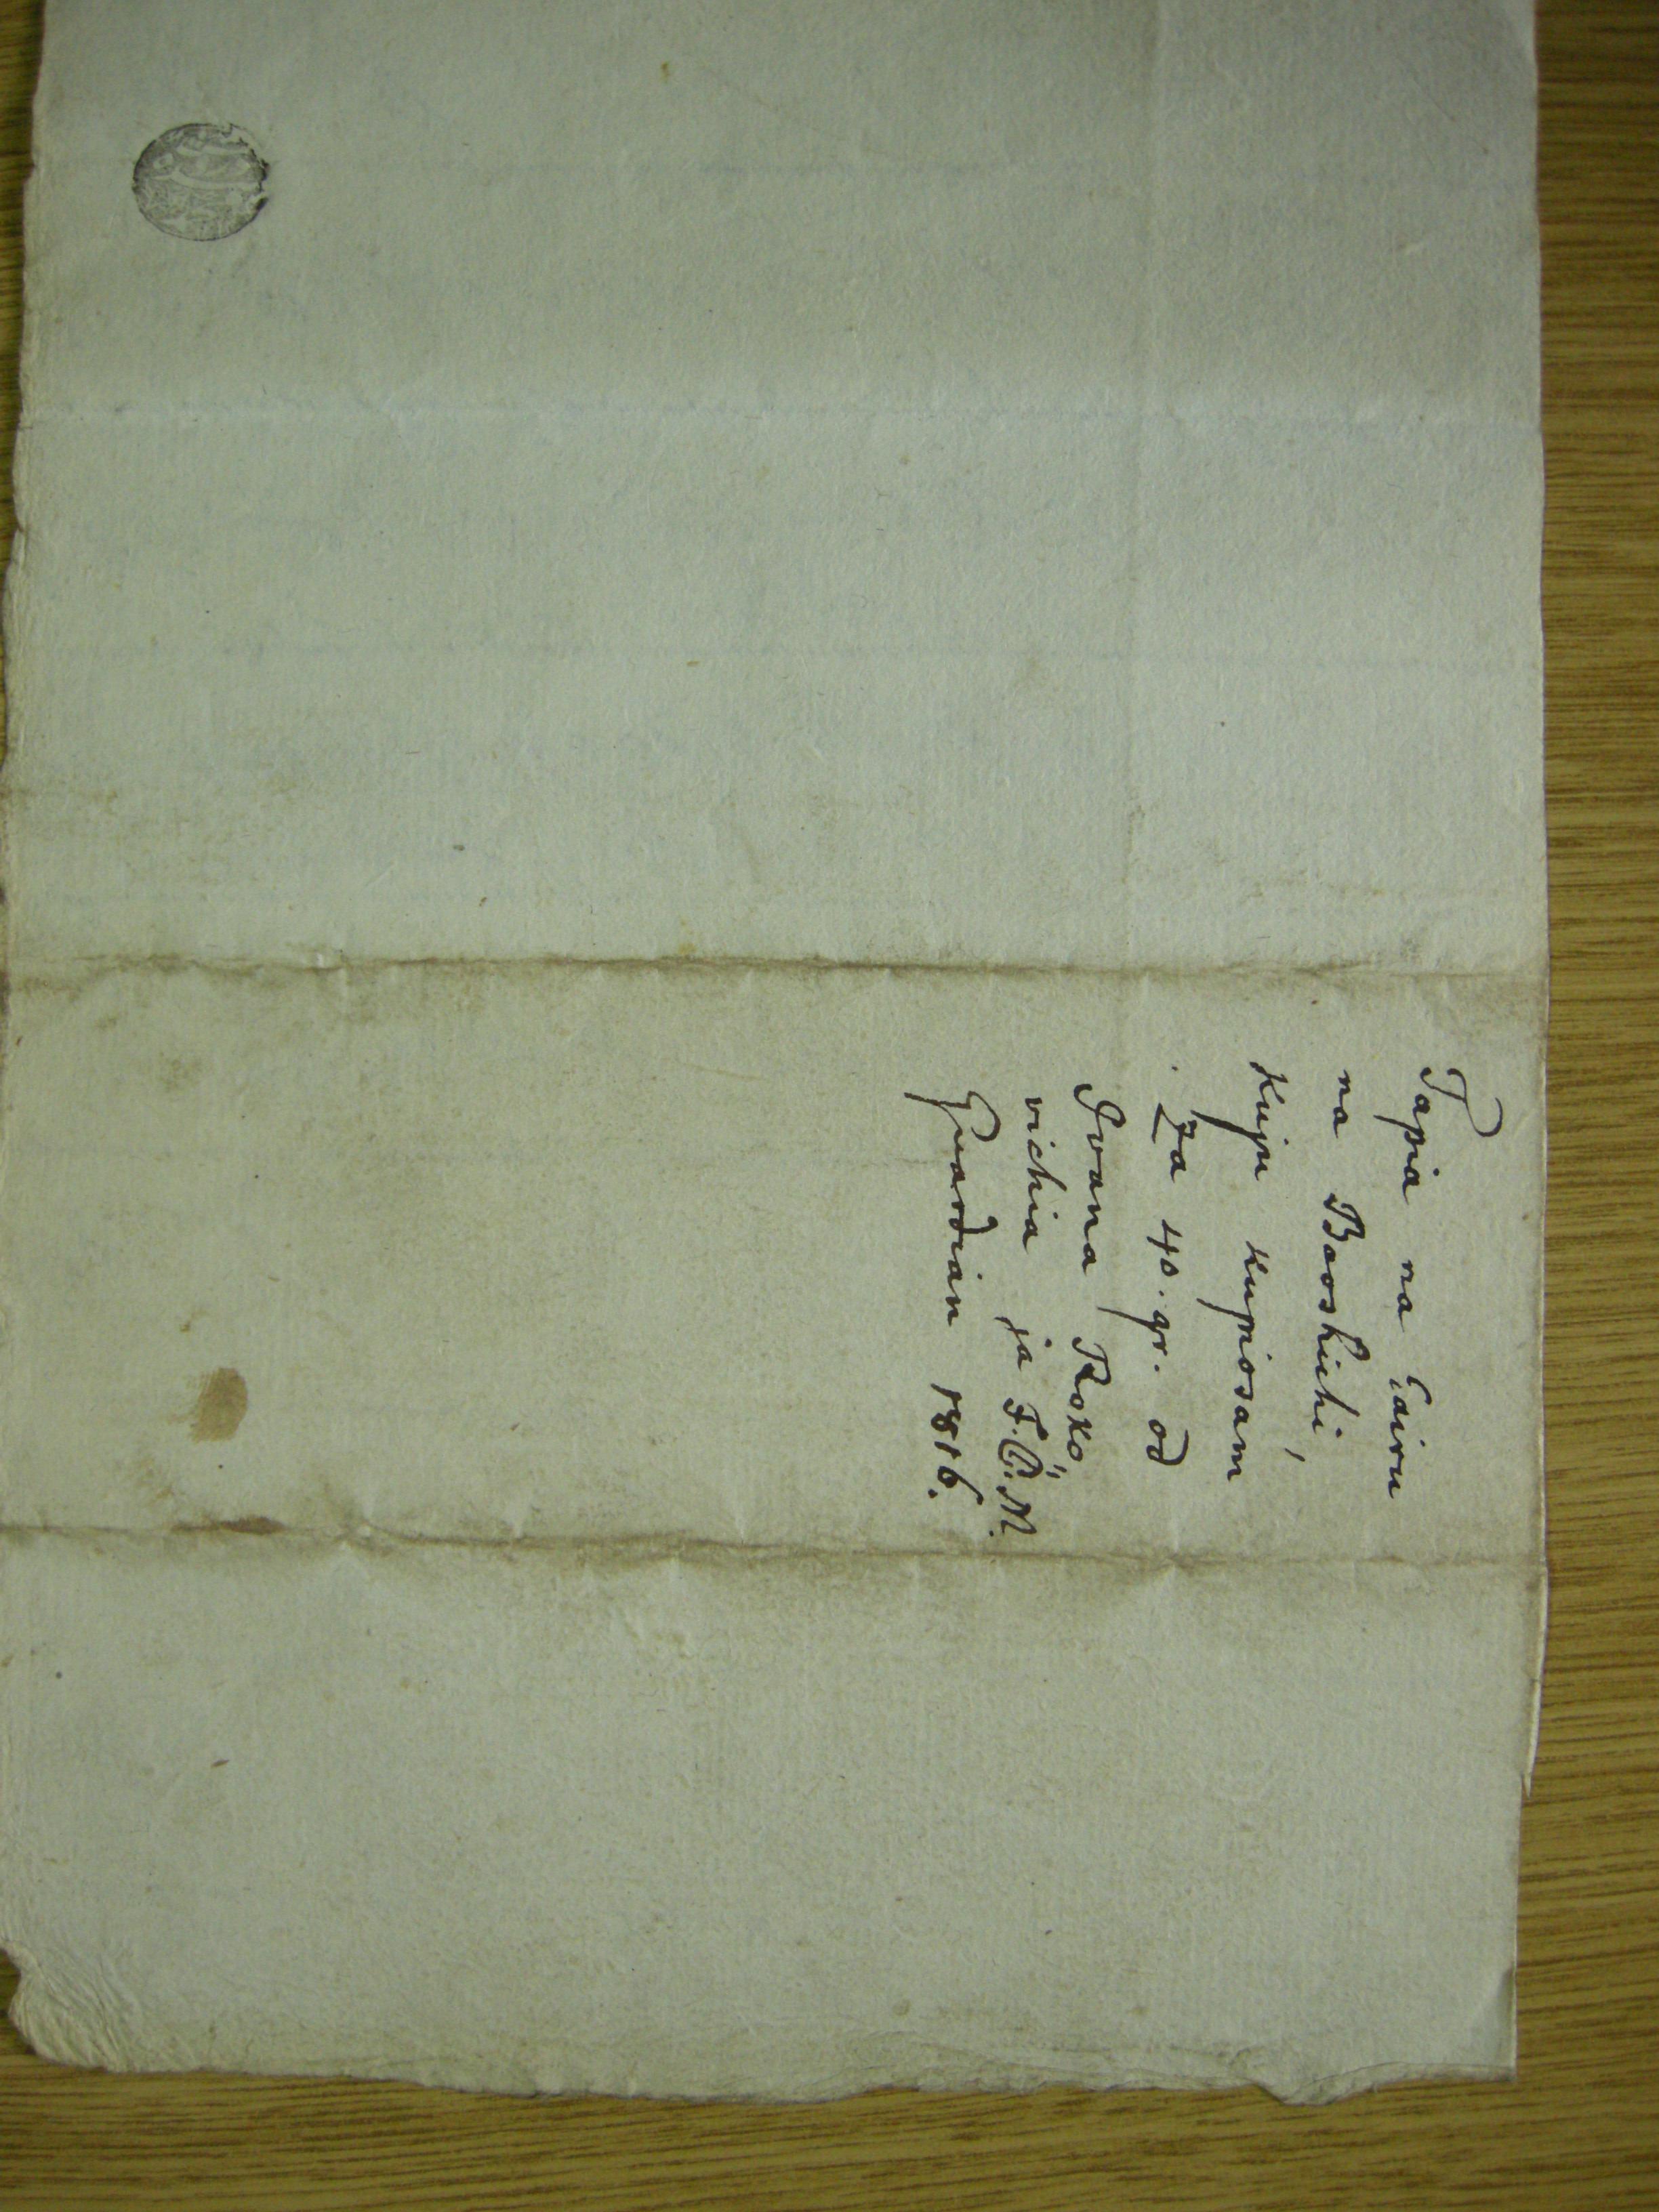 Tapia na Eairu
na Baoskichi,
Kuju kupiosam
za 40. gr. od
Ivana Roko
vichia ja F. O. M.
Guardian 1816.